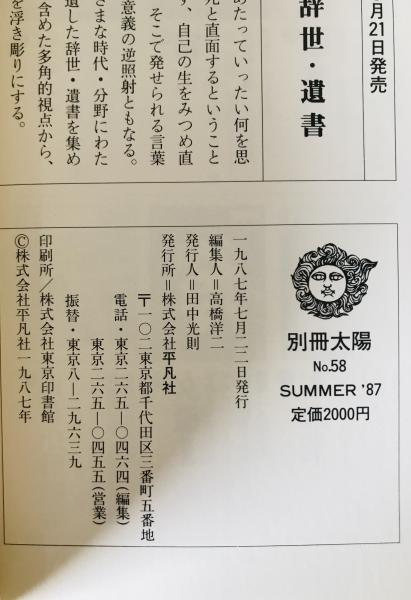 月21日発売
辞世・遺書
あたっていったい何を思
死と直面するということ
す、自己の生をみつめ直
そこで発せられる言葉
意義の逆照射ともなる。
さまな時代・分野にわた
遺した辞世・遺書を集め
含めた多角的視点から、
を浮き彫りにする。
別冊太陽
No.58
SUMMER '87
定価2000円
一九八七年七月二二日発行
編集人＝高橋洋二
発行人＝田中光則
発行所＝株式会社平凡社
〒一〇二東京都千代田区三番町五番地
電話・東京二六五―〇四六四(編集)
東京二六五―〇四五五(営業)
振替・東京八―二九六三九
印刷所／株式会社東京印書館
©株式会社平凡社一九八七年